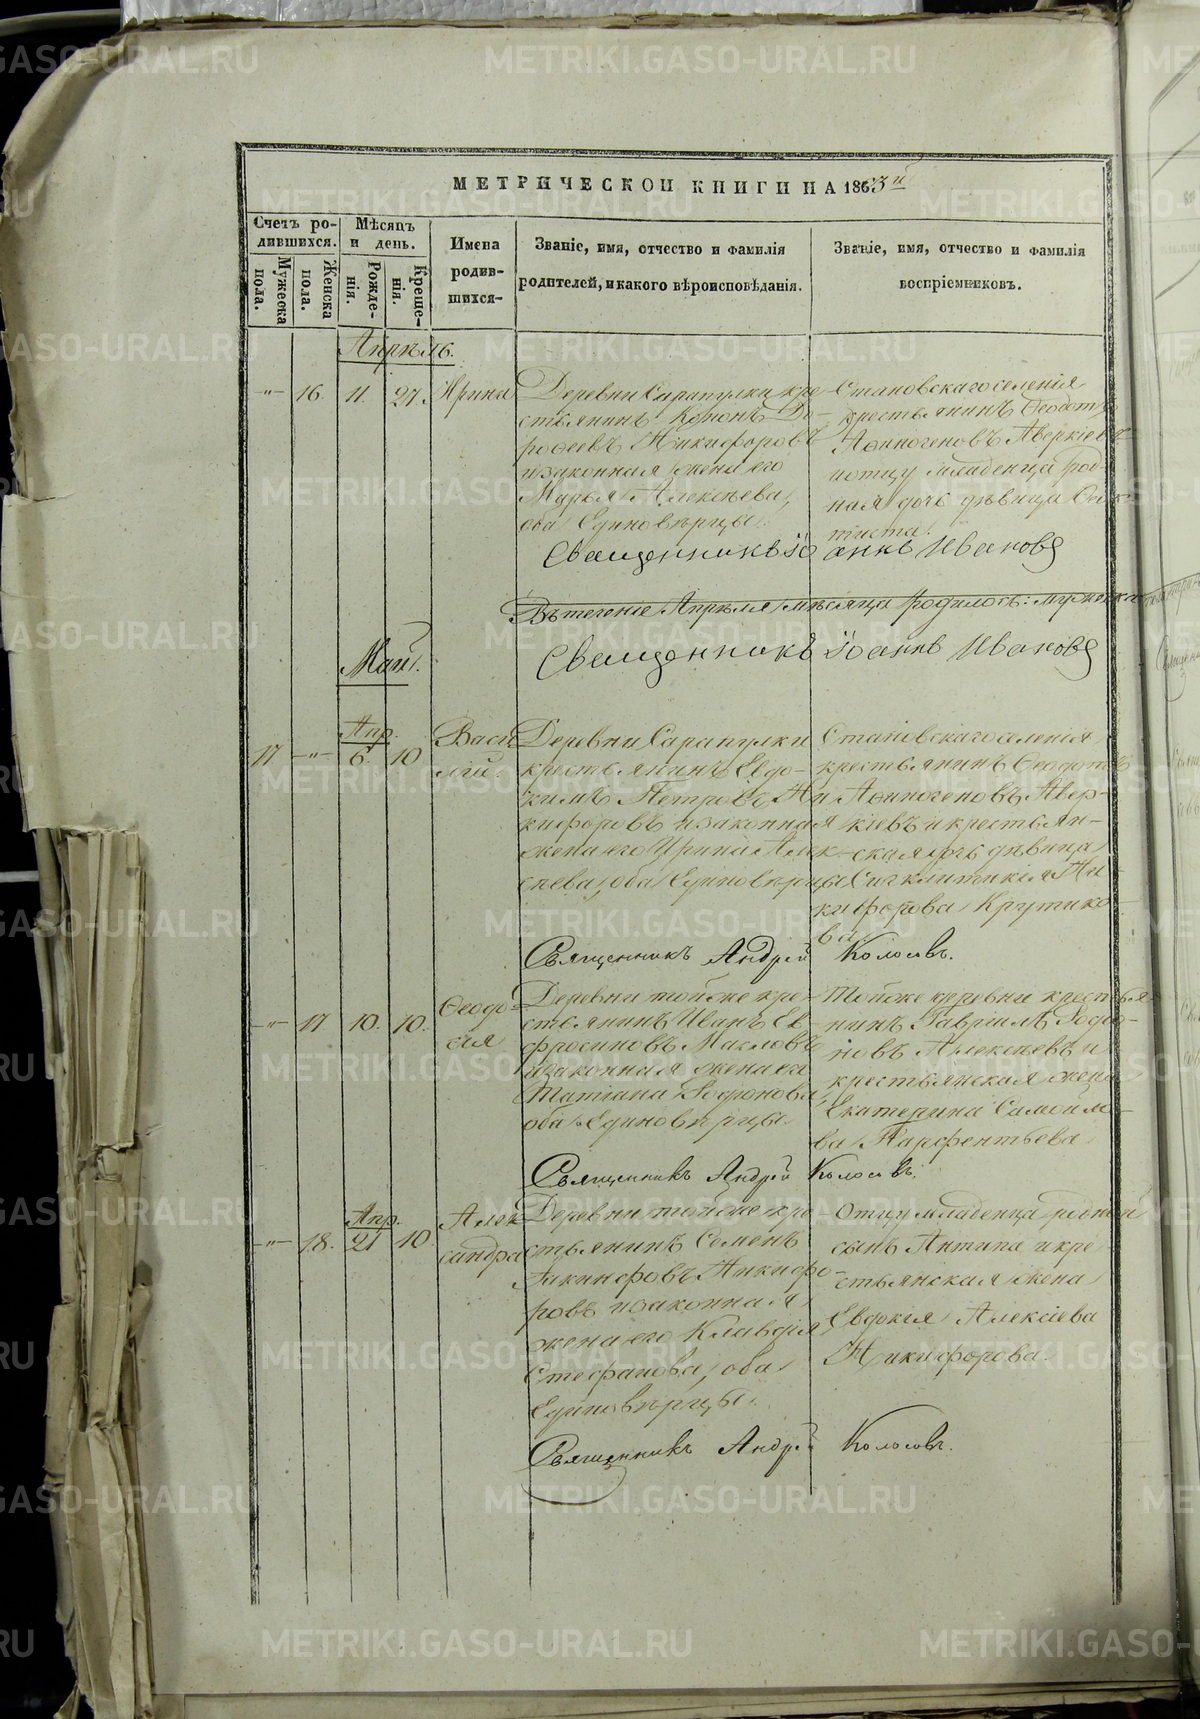 МЕТРИЧЕСКОЙ КНИГИ НА 1863й
Счетъ родившихся.
Мѣсяцъ и день.
Имена родившихся
Званіе, имя, отчество и фамилія родителей, и какого вѣроисповѣданія.
Званіе, имя, отчество и фамилія воспріемниковъ.
Мужеска пола.
Женска пола.
Рожденія.
Крещенія.
Апрѣль.
-"- 16. 11. 27. Ирина
Деревни Сарапулки кре-
стьянинъ Кононъ До-
рофеевъ Никифоровъ
и законная жена его
Марья Алексѣева,
оба Единовѣрцы.
Становскаго селенія
крестьянинъ Ѳеодотъ
Аѳиногеновъ Аверкіевъ
и отцу младенца род-
ная дочь дѣвица
Священникъ Іоаннъ Ивановъ
Въ теченіе Апрѣля мѣсяца родилось: мужеска
Священникъ Іоаннъ Ивановъ
Май.
17 -"- Апр. 6. 10 Васи
лій.
Деревни Сарапулки
крестьянинъ Евдо-
кимъ Петровъ Ни
кифоровъ и законная
жена его Ирина Алек
сѣева, оба Единовѣрцы
Становскаго селенія
крестьянинъ Ѳеодотъ
Аѳиногеновъ Авер-
кіевъ и крестьян-
ская дочь дѣвица
Сигклитикія Ни-
кифорова Крутико-
ва
Священникъ Андрей Колосовъ.
-"- 17 10. 10. Ѳеодо-
сія
Деревни тойже кре-
стьянинъ Иванъ Ев-
фросиновъ Масловъ
и законная жена его
Татіана Родіонова,
оба Единовѣрцы.
Тойже деревни крестья-
нинъ Гавріилъ Родіо-
новъ Алексѣевъ и
крестьянская жена
Екатерина Самойло-
ва Парфентьева
Священникъ Андрей Колосовъ.
-"- 18. Апр. 21 10. Алек
сандра
Деревни тойже кре
стьянинъ Семенъ
Никифо-
ровъ и законная
жена его Клавдія
Стефанова, оба
Единовѣрцы.
Отцу младенца родной
сынъ Антипа и кре-
стьянская жена
Евдокія Алексіева
Никифорова.
Священникъ Андрей Колосовъ.
METRIKI.GASO-URAL.RU